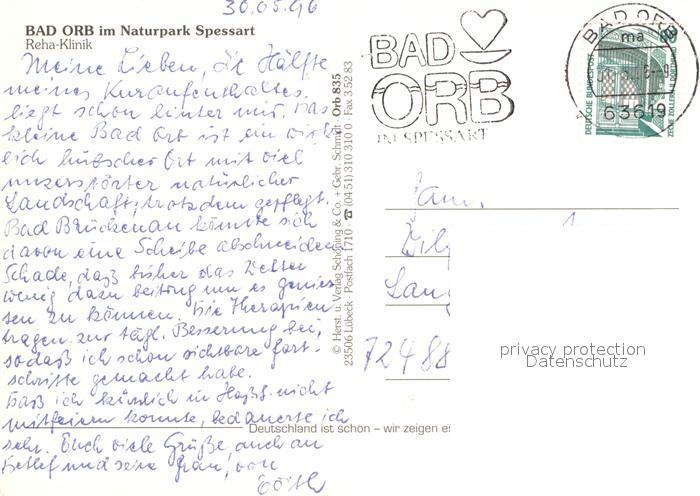 30.05.96
BAD ORB im Naturpark Spessart
Reha-Klinik
Meine Lieben, die Hälfte
meines Kuraufenthaltes
liegt schon hinter mir. Das
kleine Bad Orb ist ein wirk-
lich hübscher Ort mit viel
unzerstörter natürlicher
Landschaft, trotzdem gepflegt.
Bad Brückenau könnte sich
davon eine Scheibe abschneiden
Schade, daß bisher das Wetter
wenig dazu beitrug um es genies-
sen zu können. Die Therapien
tragen zur tägl. Besserung bei,
sodaß ich schon sichtbare Fort-
schritte gemacht habe.
Daß ich kürzlich in nicht
mitfeiern konnte, bedauerte ich
sehr. Euch viele Grüße, auch an
Detlef und seine Frau, von
© Herst. u. Verlag Schöning & Co. + Gebr. Schmidt · Orb 835
23506 Lübeck · Postfach 1710 · ☎ (04 51) 310 310 · Fax 3 52 83
BAD
ORB
IM SPESSART
BAD ORB
ma
63619
DEUTSCHE BUNDESPOST
ZECHE ZOLLERN II DORTMUND
Fam.
72488
privacy protection
Datenschutz
Deutschland ist schön – wir zeigen es